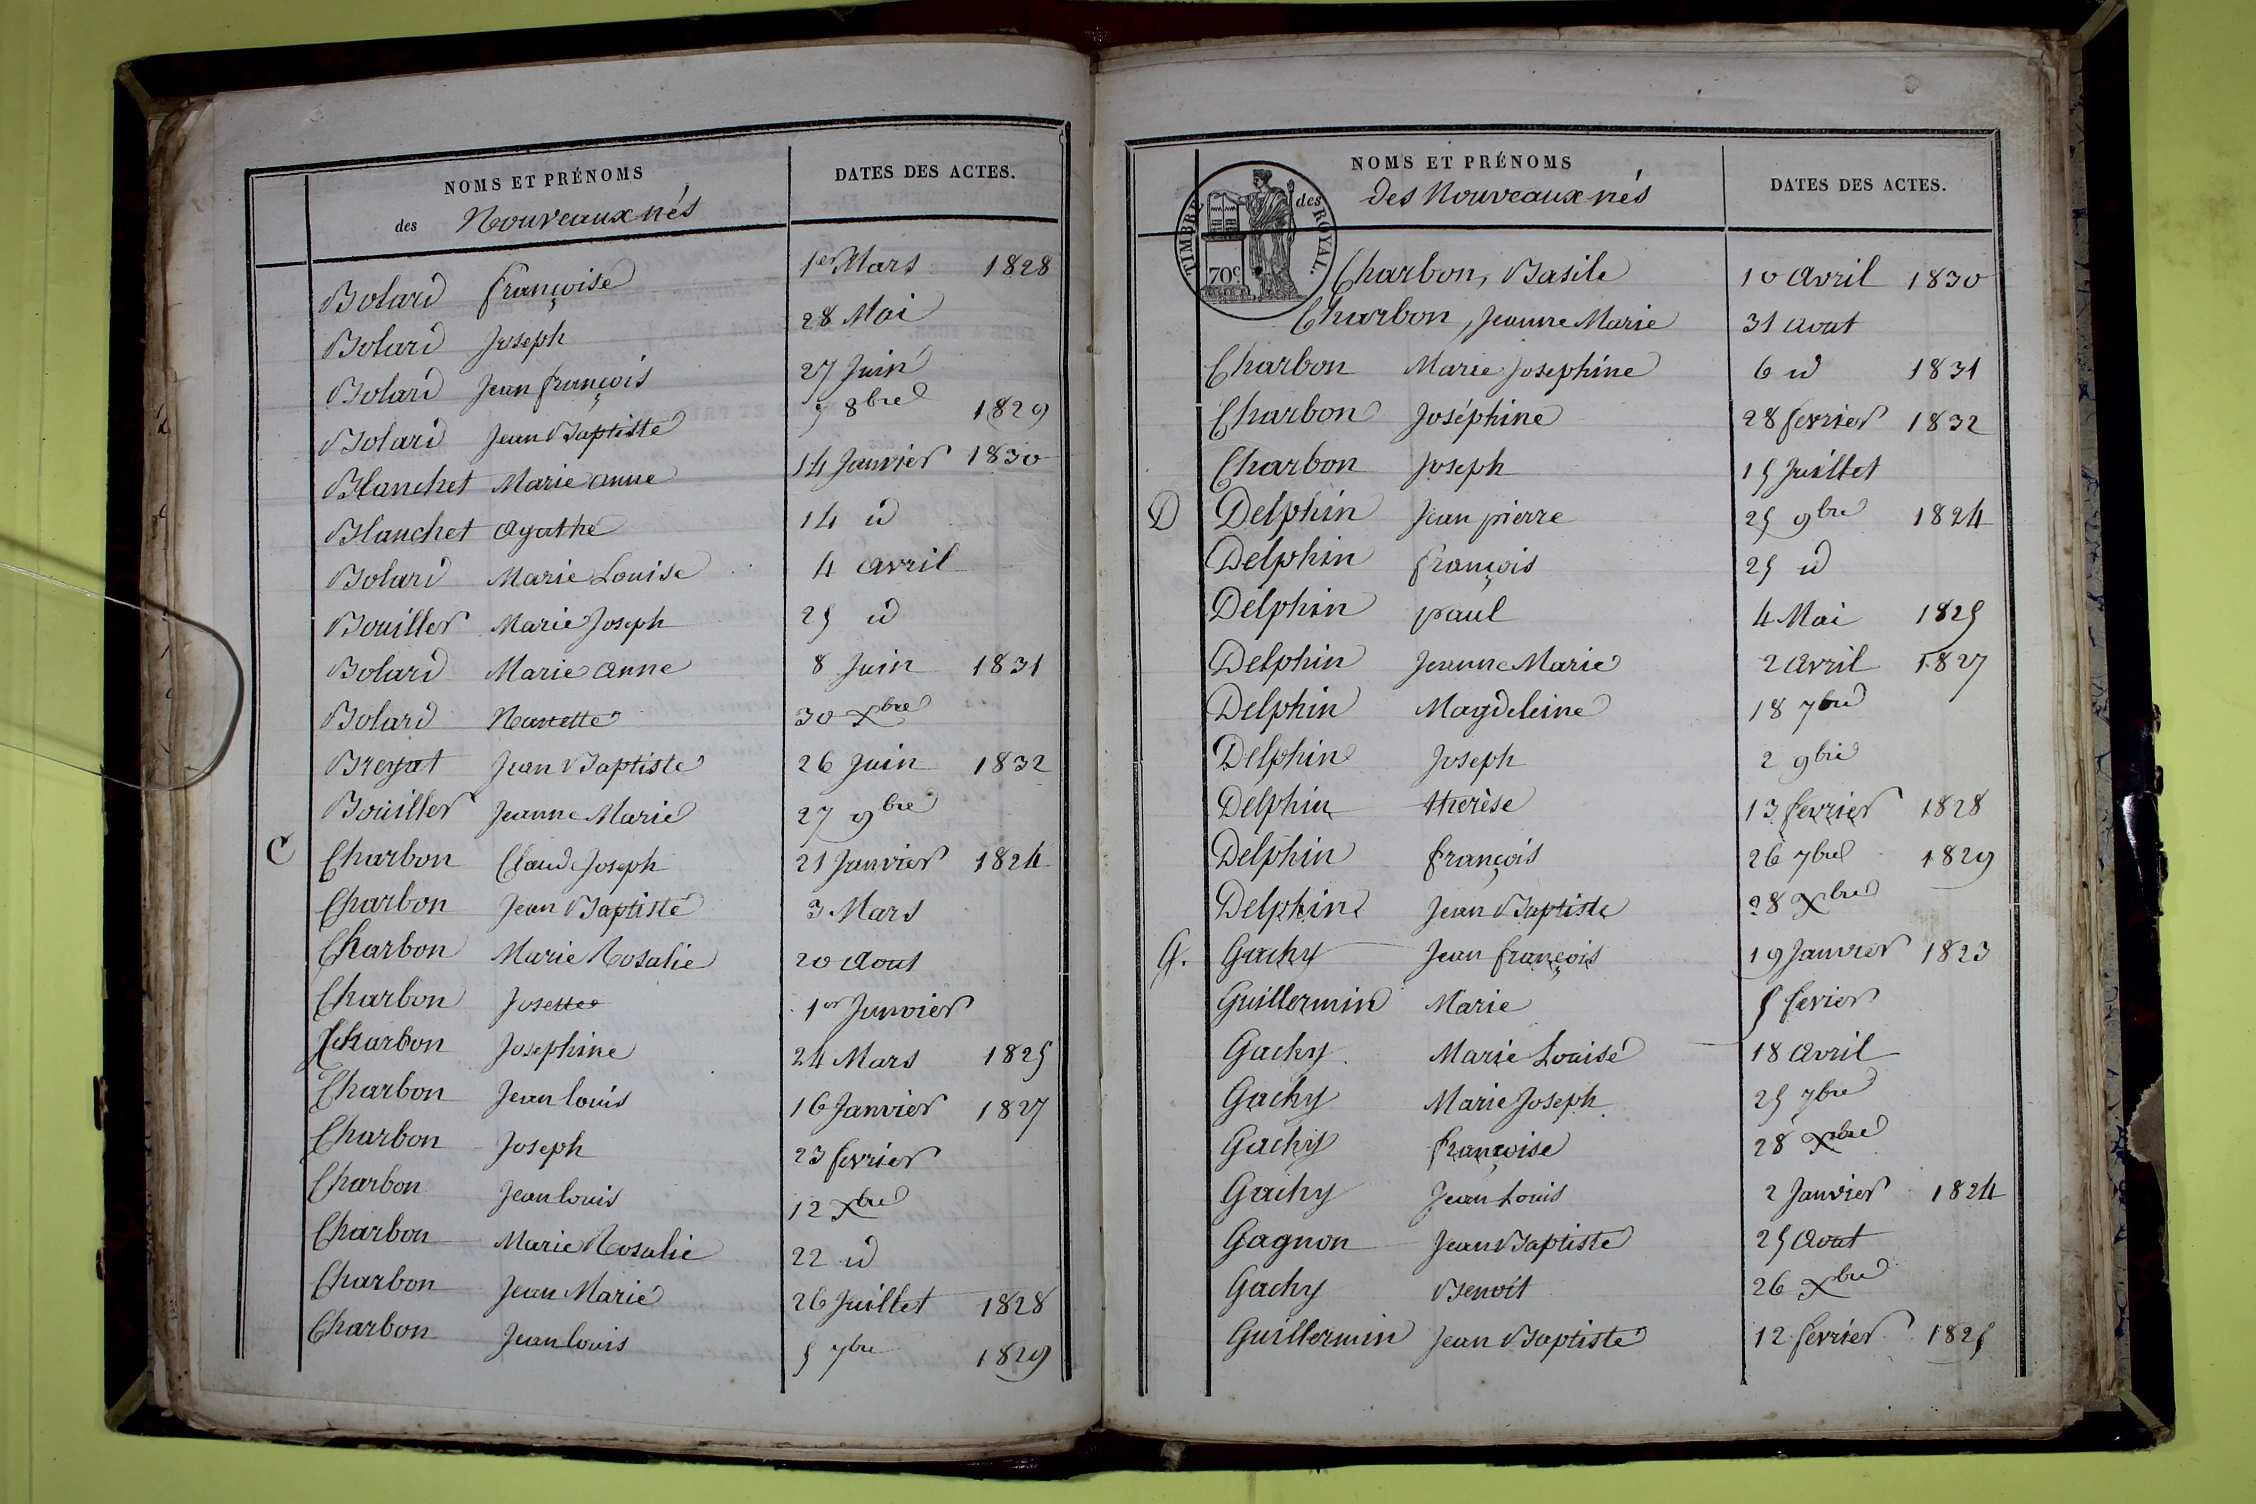 NOMS ET PRÉNOMS DATES DES ACTES.
des Nouveaux nés
Bolard françoise 1er Mars 1828
Bolard Joseph 28 Mai
Bolard Jean françois 27 Juin
Bolard Jean Baptiste 5 8bre 1829
Blanchet Marie anne 14 Janvier 1830
Blanchet agathe 14 id
Bolard Marie Louise 4 avril
Bouiller Marie Joseph 25 id
Bolard Marie anne 8 Juin 1831
Bolard Nanette 30 Xbre
Breyat Jean Baptiste 26 Juin 1832
Bouiller Jeanne Marie 27 9bre
C Charbon Claude Joseph 21 Janvier 1824
Charbon Jean Baptiste 3 Mars
Charbon Marie Rosalie 20 Aout
Charbon Josette 1er Janvier
Charbon Josephine 24 Mars 1825
Charbon Jean louis 16 Janvier 1827
Charbon Joseph 23 fevrier
Charbon Jean louis 12 Xbre
Charbon Marie Rosalie 22 id
Charbon Jean Marie 26 Juillet 1828
Charbon Jean louis 5 7bre 1829
NOMS ET PRÉNOMS DATES DES ACTES.
des Des Nouveaux nés
TIMBRE ROYAL.
70c
Charbon, Basile 10 avril 1830
Charbon, Jeanne Marie 31 aout
Charbon Marie Josephine 6 id 1831
Charbon Joséphine 28 fevrier 1832
Charbon Joseph 15 Juillet
D Delphin Jean pierre 25 9bre 1824
Delphin françois 25 id
Delphin paul 4 Mai 1825
Delphin Jeanne Marie 2 avril 1827
Delphin Magdeleine 18 7bre
Delphin Joseph 2 9bre
Delphin therèse 13 fevrier 1828
Delphin françois 26 7bre 1829
Delphin Jean Baptiste 28 Xbre
G. Gachy Jean françois 19 Janvier 1823
Guillermin Marie 5 fevier
Gachy Marie Louise 18 avril
Gachy Marie Joseph 25 7bre
Gachy françoise 28 Xbre
Gachy Jean Louis 2 Janvier 1824
Gagnon Jean Baptiste 25 aout
Gachy Benoit 26 Xbre
Guillermin Jean Baptiste 12 fevrier 1825